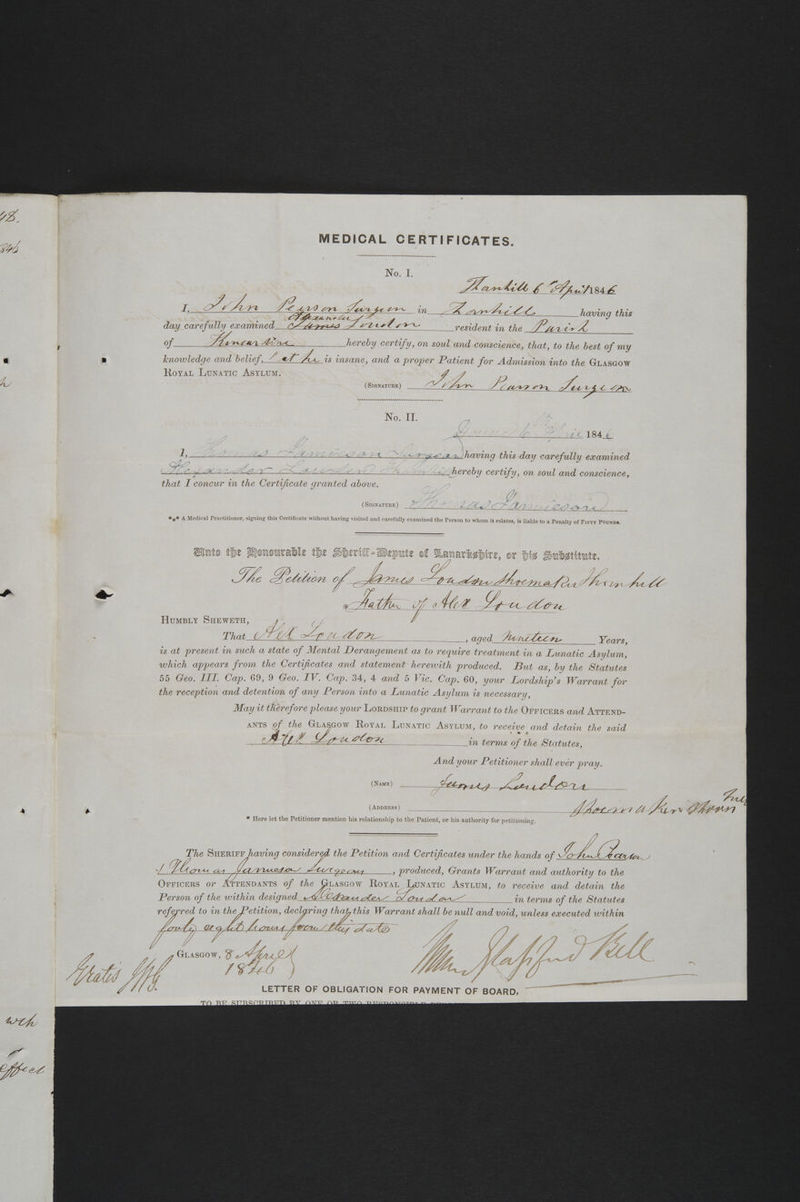 48.
846
MEDICAL CERTIFICATES.
No. I.
Thanhill 6th April 1846
I, John Pearson Surgeon in Thanhill having this
Alexander
day carefully examined James Loudon resident in the Parish
of Kincardine hereby certify, on soul and conscience, that, to the best of my
knowledge and belief, that he is insane, and a proper Patient for Admission into the GLASGOW
ROYAL LUNATIC ASYLUM.
(SIGNATURE) John Pearson Surgeon
No. II.
April 1846
I, Thomas Jamieson Surgeon having this day carefully examined
Alexander Loudon hereby certify, on soul and conscience,
that I concur in the Certificate granted above.
(SIGNATURE) Thomas Jamieson
*** A Medical Practitioner, signing this Certificate without having visited and carefully examined the Person to whom it relates, is liable to a Penalty of FIFTY POUNDS.
Unto the Honourable the Sheriff-Depute of Lanarkshire, or his Substitute.
The Petition of James Loudon Shoemaker Thornhill
* Father of Alexr Loudon
HUMBLY SHEWETH,
That Alexr Loudon, aged Nineteen Years,
is at present in such a state of Mental Derangement as to require treatment in a Lunatic Asylum,
which appears from the Certificates and statement herewith produced. But as, by the Statutes
55 Geo. III. Cap. 69, 9 Geo. IV. Cap. 34, 4 and 5 Vic. Cap. 60, your Lordship's Warrant for
the reception and detention of any Person into a Lunatic Asylum is necessary,
May it therefore please your LORDSHIP to grant Warrant to the OFFICERS and ATTEND-
ANTS of the GLASGOW ROYAL LUNATIC ASYLUM, to receive and detain the said
Alexr Loudon in terms of the Statutes,
And your Petitioner shall ever pray.
(NAME) James Loudon
(ADDRESS) Shoemaker Thornhill
* Here let the Petitioner mention his relationship to the Patient, or his authority for petitioning.
The SHERIFF having considered the Petition and Certificates under the hands of John Pearson
& Thomas Jamieson Surgeons, produced, Grants Warrant and authority to the
OFFICERS or ATTENDANTS of the GLASGOW ROYAL LUNATIC ASYLUM, to receive and detain the
Person of the within designed Alexander Loudon in terms of the Statutes
referred to in the Petition, declaring that this Warrant shall be null and void, unless executed within
forty eight hours from this date
GLASGOW, 8 April
1846
Gratis
Glassford Bell
LETTER OF OBLIGATION FOR PAYMENT OF BOARD.
TO BE SUBSCRIBED BY ONE OR TWO RESPONSIBLE
effect